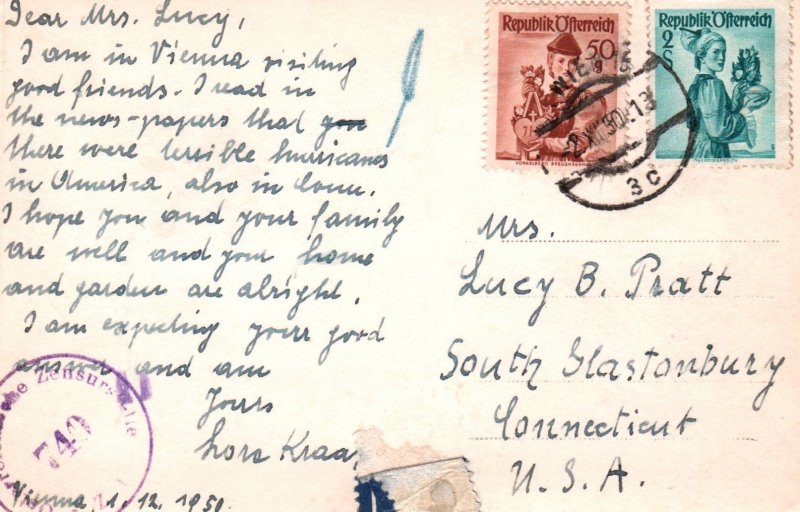 Dear Mrs. Lucy,
I am in Vienna visiting
good friends. I read in
the news-papers that
there were terrible hurricanes
in America, also in Conn.
I hope you and your family
are well and your home
and garden are alright.
I am expecting your good
answer and am
Yours
Lore
Vienna, 1. 12. 1950.
Republik Österreich
50
Republik Österreich
2 S
WIEN
50
3 c
Mrs.
Lucy B. Pratt
South Glastonbury
Connecticut
U. S. A.
Zensurstelle
740